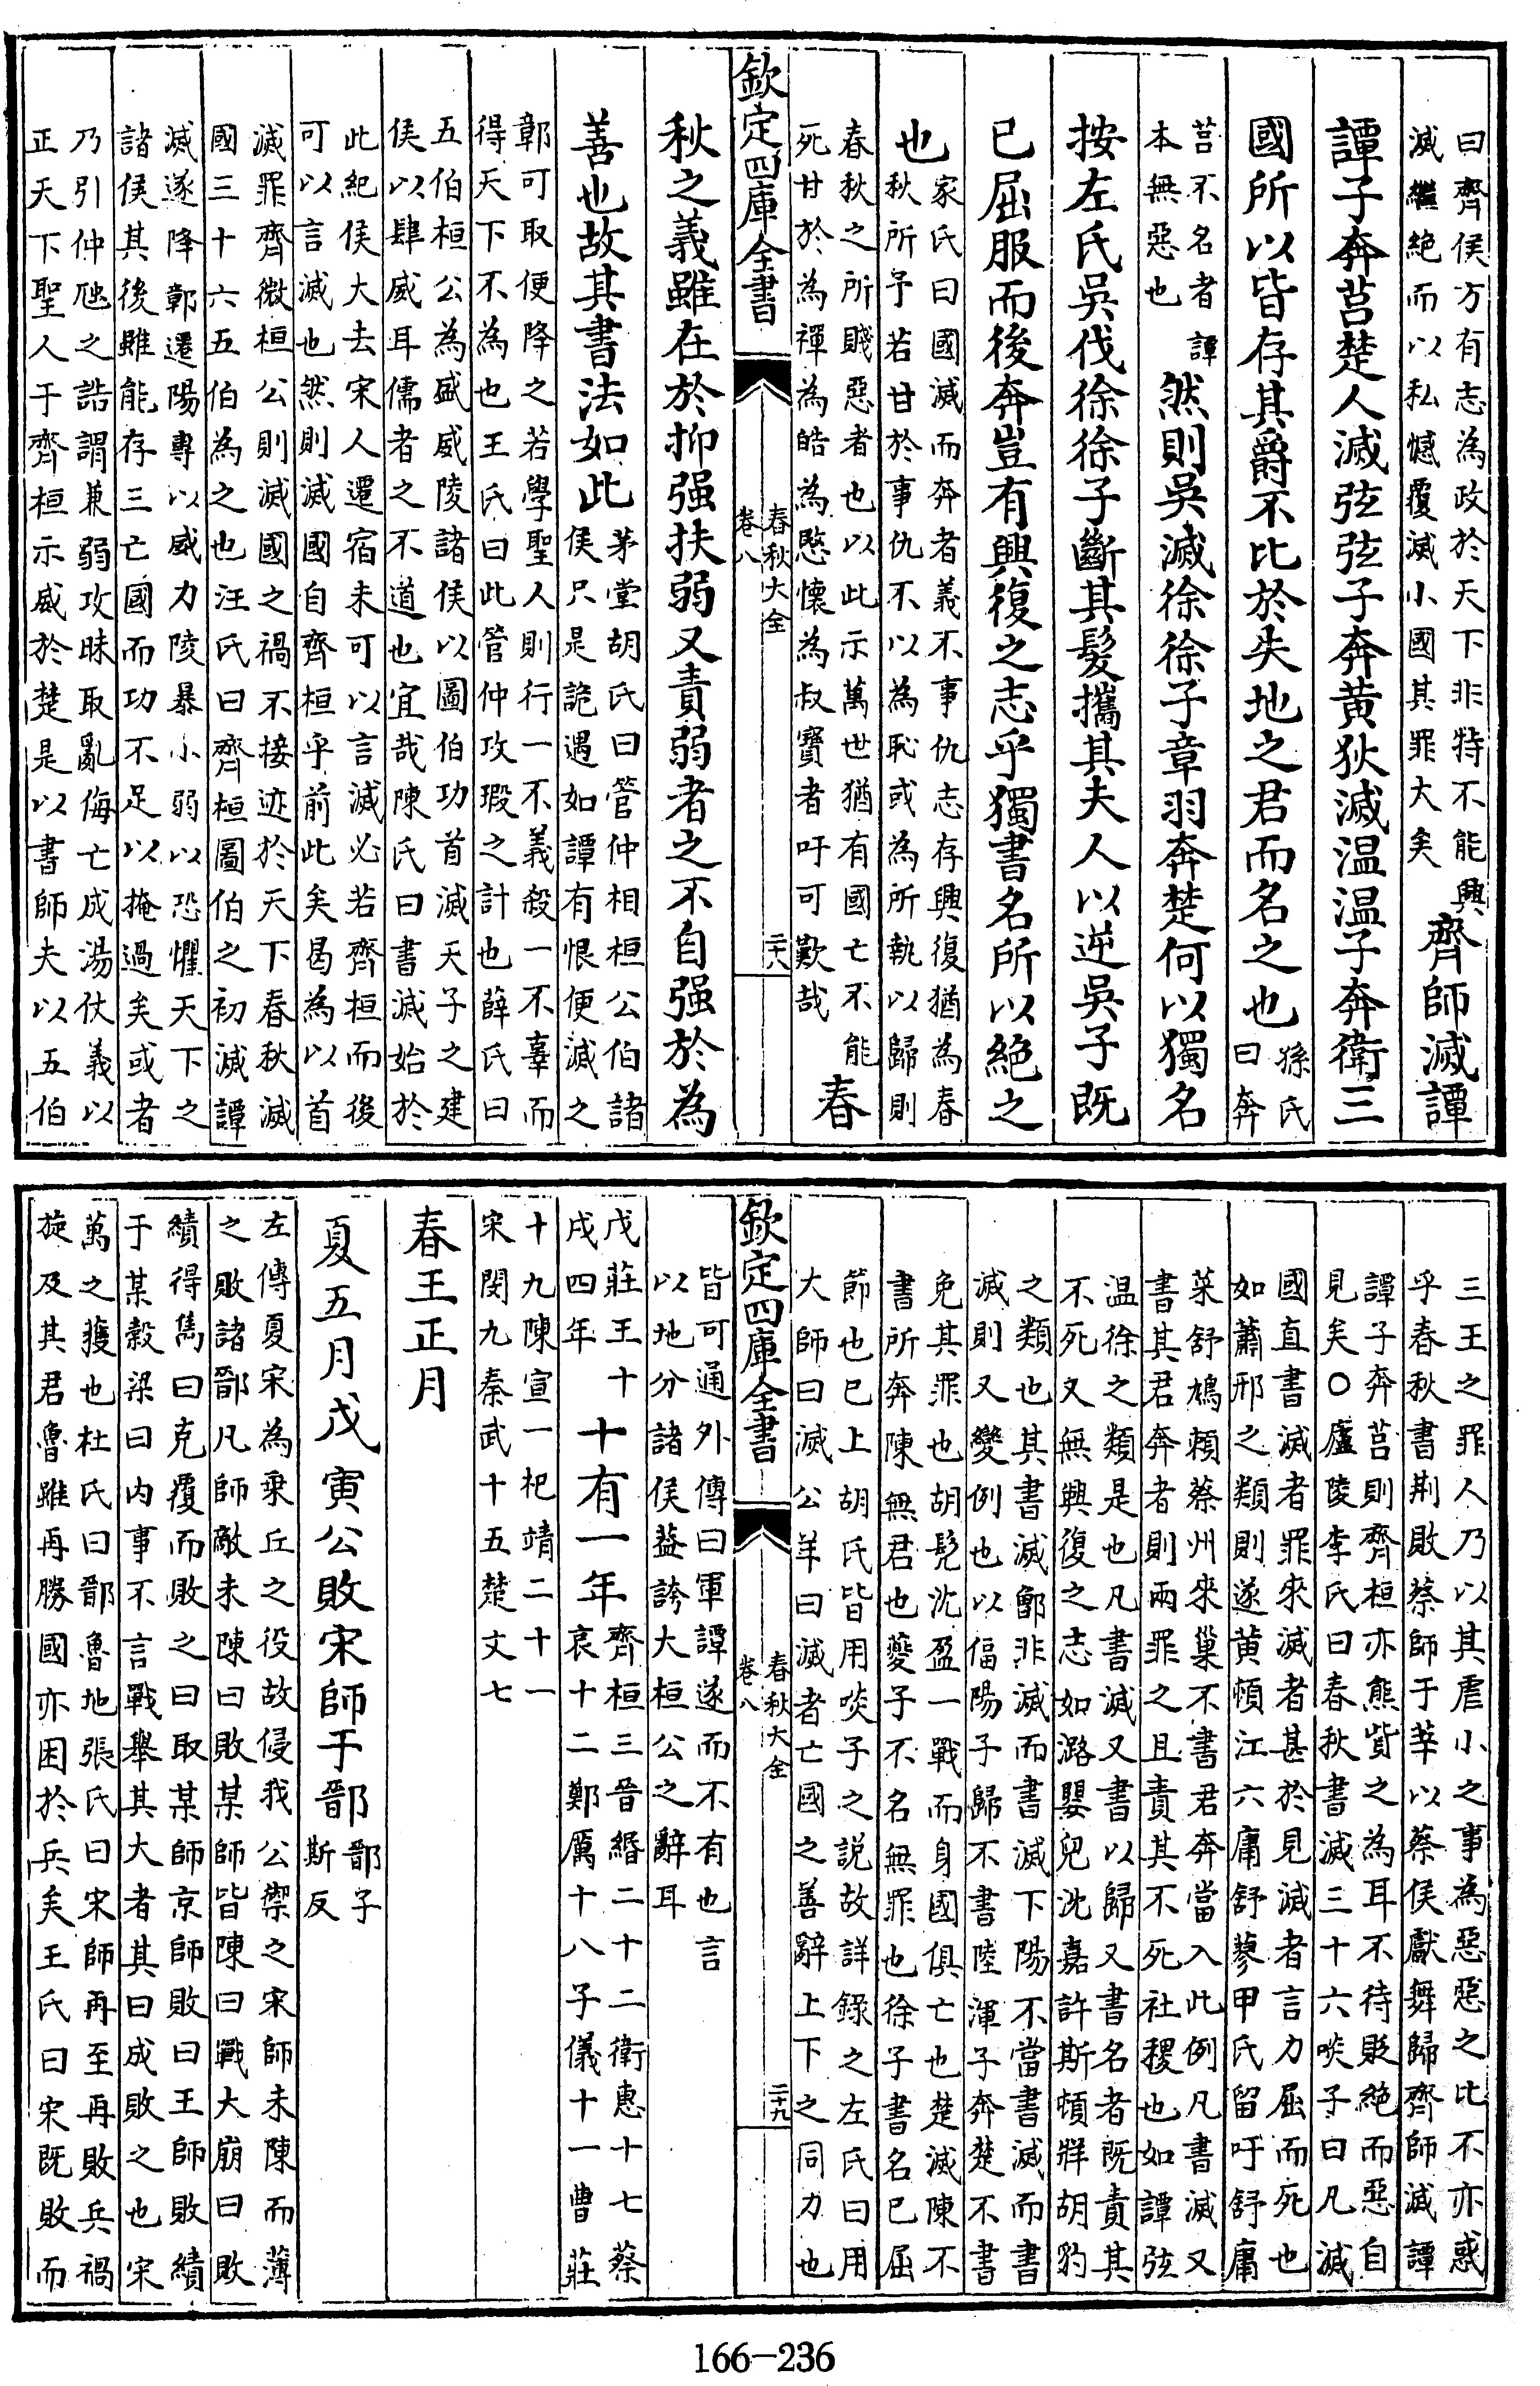 曰齊侯方有志為政於天下非特不能興
滅繼絶而以私憾覆滅小國其罪大矣
齊師滅譚
譚子奔莒楚人滅弦弦子奔黄狄滅温温子奔衛三
國所以皆存其爵不比於失地之君而名之也
孫氏
曰奔
莒不名者譚
本無惡也
然則吳滅徐徐子章羽奔楚何以獨名
按左氏吳伐徐徐子斷其髮攜其夫人以逆吳子既
已屈服而後奔豈有興復之志乎獨書名所以絶之
也
家氏曰國滅而奔者義不事仇志存興復猶為春
秋所予若甘於事仇不以為恥或為所執以歸則
春秋之所賤惡者也以此示萬世猶有國亡不能
死甘於為禪為皓為愍懷為叔寶者吁可歎哉
春
欽定四庫全書
春秋大全
卷八
二十八
秋之義雖在於抑强扶弱又責弱者之不自强於為
善也故其書法如此
茅堂胡氏曰管仲相桓公伯諸
侯只是詭遇如譚有恨便滅之
鄣可取便降之若學聖人則行一不義殺一不辜而
得天下不為也王氏曰此管仲攻瑕之計也薛氏曰
五伯桓公為盛威陵諸侯以圖伯功首滅天子之建
侯以肆威耳儒者之不道也宜哉陳氏曰書滅始於
此紀侯大去宋人遷宿未可以言滅必若齊桓而後
可以言滅也然則滅國自齊桓乎前此矣曷為以首
滅罪齊微桓公則滅國之禍不接迹於天下春秋滅
國三十六五伯為之也汪氏曰齊桓圖伯之初滅譚
滅遂降鄣遷陽專以威力陵暴小弱以恐懼天下之
諸侯其後雖能存三亡國而功不足以掩過矣或者
乃引仲虺之誥謂兼弱攻昧取亂侮亡成湯仗義以
正天下聖人于齊桓示威於楚是以書師夫以五伯
三王之罪人乃以其虐小之事為惡惡之比不亦惑
乎春秋書荆敗蔡師于莘以蔡侯獻舞歸齊師滅譚
譚子奔莒則齊桓亦熊貲之為耳不待貶絶而惡自
見矣○廬陵李氏曰春秋書滅三十六啖子曰凡滅
國直書滅者罪來滅者甚於見滅者言力屈而死也
如蕭邢之類則遂黄頓江六庸舒蓼甲氏留吁舒庸
萊舒鳩賴蔡州來巢不書君奔當入此例凡書滅又
書其君奔者則兩罪之且責其不死社稷也如譚弦
温徐之類是也凡書滅又書以歸又書名者既責其
不死又無興復之志如潞嬰兒沈嘉許斯頓牂胡豹
之類也其書滅鄫非滅而書滅下陽不當書滅而書
滅則又變例也以偪陽子歸不書陸渾子奔楚不書
免其罪也胡髡沈盈一戰而身國俱亡也楚滅陳不
書所奔陳無君也夔子不名無罪也徐子書名已屈
節也已上胡氏皆用啖子之説故詳錄之左氏曰用
大師曰滅公羊曰滅者亡國之善辭上下之同力也
欽定四庫全書
春秋大全
卷八
二十九
皆可通外傳曰軍譚遂而不有也言
以地分諸侯葢誇大桓公之辭耳
戊莊王十
戌四年
十有一年
齊桓三晉緡二十二衛惠十七蔡
哀十二鄭厲十八子儀十一曹莊
十九陳宣一杞靖二十一
宋閔九秦武十五楚文七
春王正月
夏五月戊寅公敗宋師于鄑
鄑子
斯反
左傳夏宋為乗丘之役故侵我公禦之宋師未陳而薄
之敗諸鄑凡師敵未陳曰敗某師皆陳曰戰大崩曰敗
績得雋曰克覆而敗之曰取某師京師敗曰王師敗績
于某榖梁曰内事不言戰舉其大者其曰成敗之也宋
萬之獲也杜氏曰鄑魯地張氏曰宋師再至再敗兵禍
旋及其君魯雖再勝國亦困於兵矣王氏曰宋既敗而
166-236